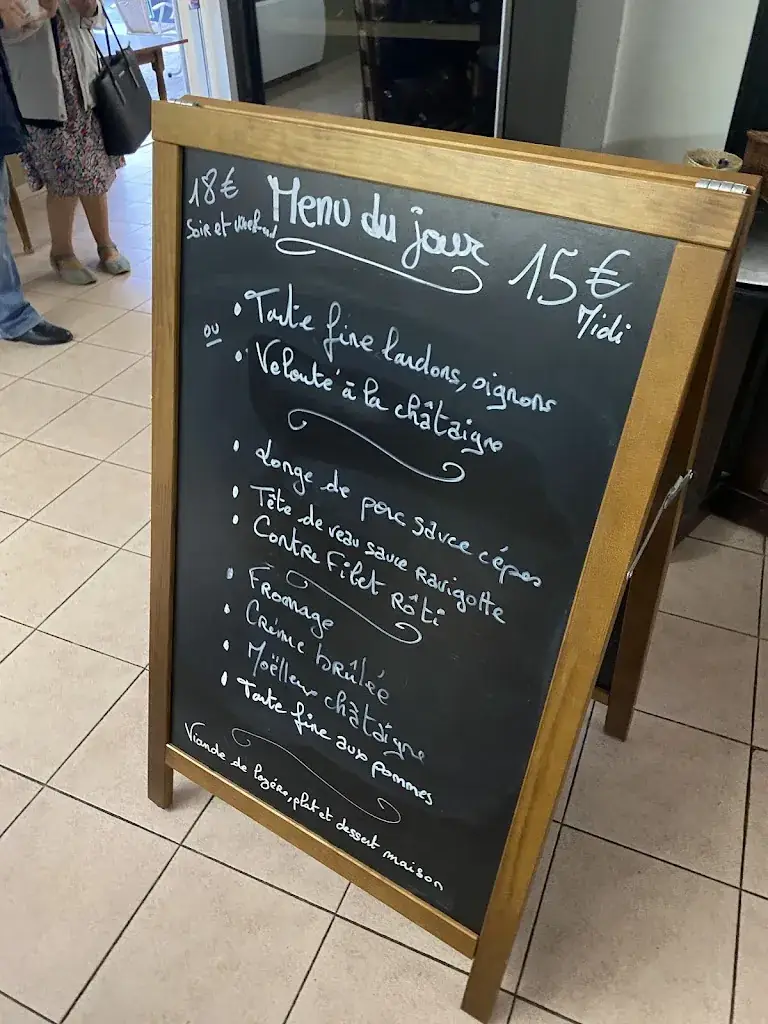 18€
Soir et weekend
Menu du jour
15€
Midi
• Tarte fine lardons, oignons
ou
• Velouté à la châtaigne
• Longe de porc sauce cépes
• Tête de veau sauce Ravigotte
• Contre Filet Rôti
• Fromage
• Crème brûlée
• Moëlleux châtaigne
• Tarte fine aux pommes
Viande de lozère, plat et dessert maison